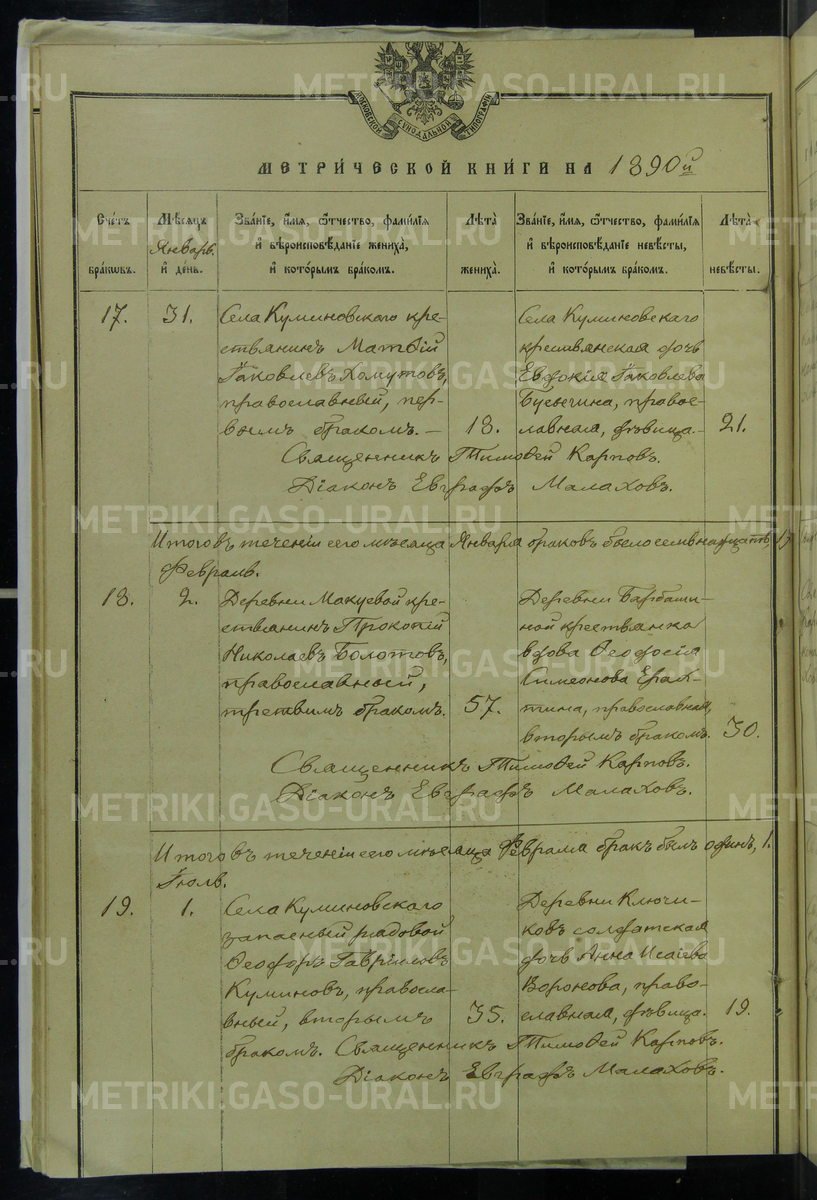 МОСКОВСКОЙ СИНОДАЛЬНОЙ ТИПОГРАФІИ
МЕТРИ́ЧЕСКОЙ КНИ́ГИ НА 1890й
Сче́тъ бра́кωвъ.
Мѣ́сяцъ Январь. и҆ де́нь.
Зва́нїе, и҆́мя, ѻ҆́тчество, фами́лїя и҆ вѣроисповѣ́данїе жениха̀, и҆ кото́рымъ бра́комъ.
Лѣ́та жениха̀.
Зва́нїе, и҆́мя, ѻ҆́тчество, фами́лїя и҆ вѣроисповѣ́данїе невѣ́сты, и҆ кото́рымъ бра́комъ.
Лѣ́та невѣ́сты.
17.
31.
Села Куминовскаго кре-
стьянинъ Матѳій
Іаковлевъ Хомутовъ,
православный, пер-
вымъ бракомъ. —
18.
Села Куминовскаго
крестьянская дочь
Евдокія Іаковлева
православная, дѣвица. —
21.
Священникъ Тимоѳей Карповъ.
Діаконъ Евграфъ Малаховъ.
Итого въ теченіи сего мѣсяца Января браковъ было семьнадцать, 17
Февраль.
18.
2.
Деревни Макуевой кре-
стьянинъ Прокопій
Николаевъ Болотовъ,
православный,
третьимъ бракомъ.
57.
Деревни Барбаши-
ной крестьянка
вдова Ѳеодосія
Симеонова
православная,
вторымъ бракомъ.
30.
Священникъ Тимоѳей Карповъ.
Діаконъ Евграфъ Малаховъ.
Итого въ теченіи сего мѣсяца Февраля бракъ былъ одинъ, 1.
Іюль.
19.
1.
Села Куминовскаго
запасный рядовой
Ѳеодоръ Гавріиловъ
Куминовъ, правосла-
вный, вторымъ
бракомъ.
35.
Деревни Ключи-
ковъ солдатская
дочь Анна Исаіева
Воронова, право-
славная, дѣвица.
19.
Священникъ Тимоѳей Карповъ.
Діаконъ Евграфъ Малаховъ.
METRIKI.GASO-URAL.RU